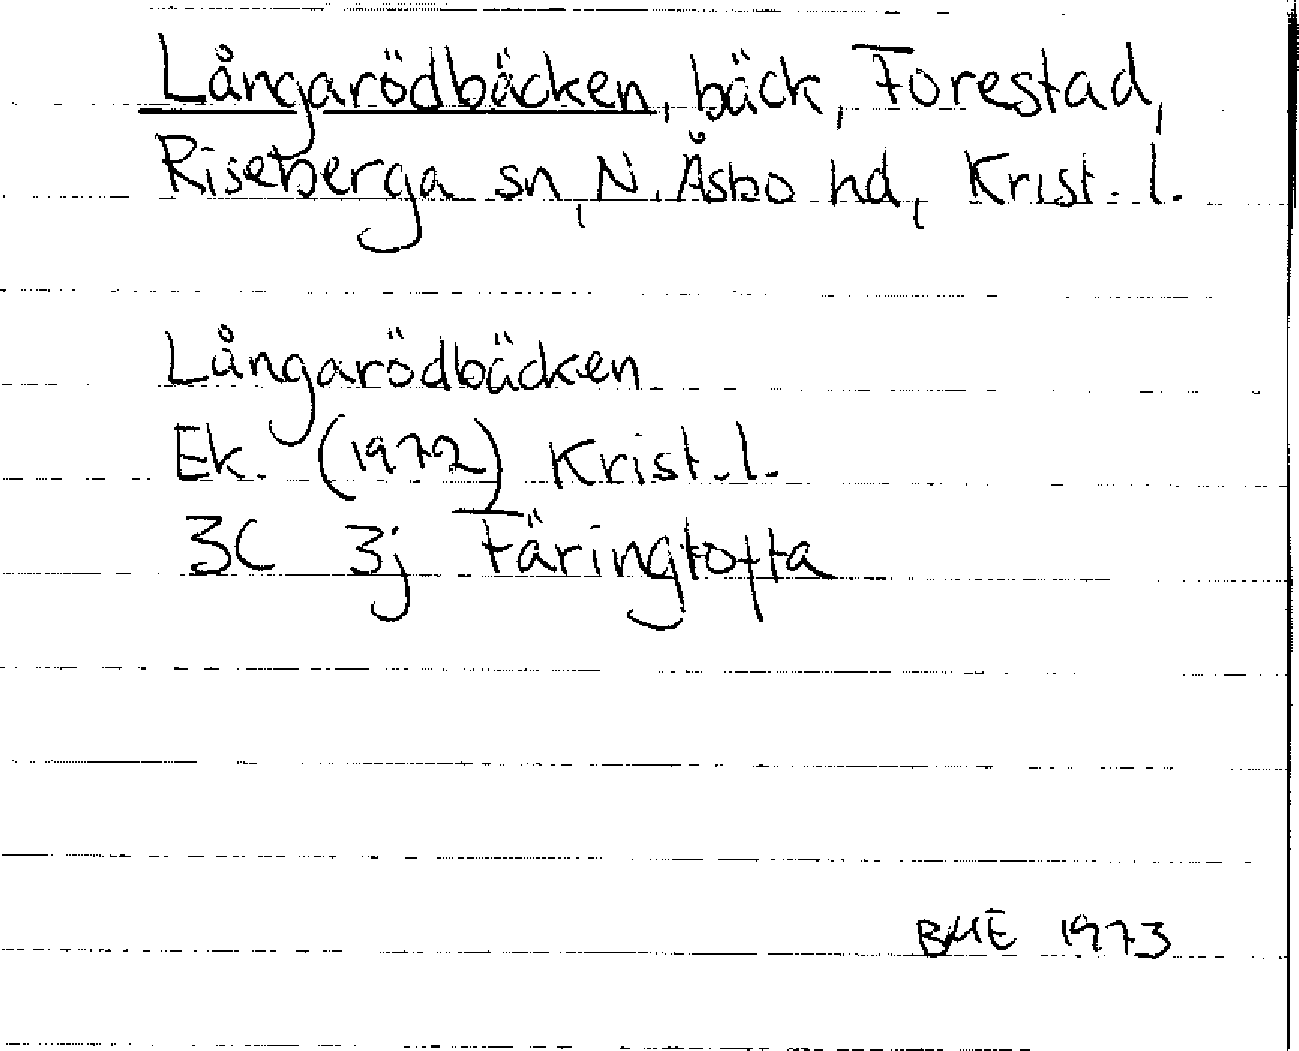 Långarödbäcken, bäck, Forestad,
Riseberga sn, N. Åsbo hd, Krist. l.
Långarödbäcken
Ek. (1972) Krist. l.
3C 3j Färingtofta
BME 1973